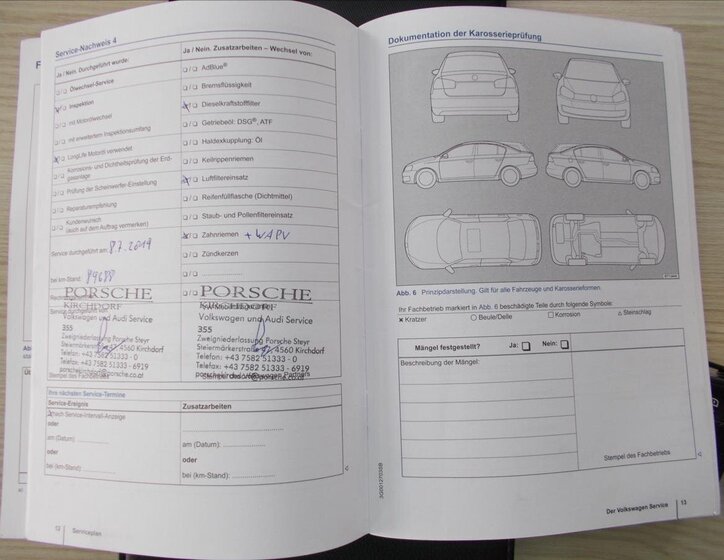 Service-Nachweis 4
Ja / Nein. Durchgeführt wurde:
Ölwechsel-Service
Inspektion
mit Motorölwechsel
mit erweitertem Inspektionsumfang
LongLife Motoröl verwendet
Korrosions- und Dichtheitsprüfung der Erd-
gasanlage
Prüfung der Scheinwerfer-Einstellung
Reparaturempfehlung
Kundenwunsch
(auch auf dem Auftrag vermerken)
Service durchgeführt am: 8.7.2019
bei km-Stand: 89688
Ja / Nein. Zusatzarbeiten – Wechsel von:
AdBlue®
Bremsflüssigkeit
Dieselkraftstofffilter
Getriebeöl: DSG®, ATF
Haldexkupplung: Öl
Keilrippenriemen
Luftfiltereinsatz
Reifenfüllflasche (Dichtmittel)
Staub- und Pollenfiltereinsatz
Zahnriemen + WAPU
Zündkerzen
PORSCHE
KIRCHDORF
Volkswagen und Audi Service
355
Zweigniederlassung Porsche Steyr
Steiermärkerstraße 4560 Kirchdorf
Telefon: +43 7582 51333 - 0
Telefax: +43 7582 51333 - 6919
Stempel des Fachbetriebs
PORSCHE
KIRCHDORF
Volkswagen und Audi Service
355
Zweigniederlassung Porsche Steyr
Steiermärkerstraße 4560 Kirchdorf
Telefon: +43 7582 51333 - 0
Telefax: +43 7582 51333 - 6919
Ihre nächsten Service-Termine
Service-Ereignis
nach Service-Intervall-Anzeige
oder
am (Datum):
oder
bei (km-Stand):
Zusatzarbeiten
am (Datum):
oder
bei (km-Stand):
12 Serviceplan
Dokumentation der Karosserieprüfung
Abb. 6 Prinzipdarstellung. Gilt für alle Fahrzeuge und Karosserieformen.
Ihr Fachbetrieb markiert in Abb. 6 beschädigte Teile durch folgende Symbole:
× Kratzer ○ Beule/Delle □ Korrosion △ Steinschlag
Mängel festgestellt? Ja: Nein:
Beschreibung der Mängel:
Stempel des Fachbetriebs
3G0012703SB
Der Volkswagen Service 13